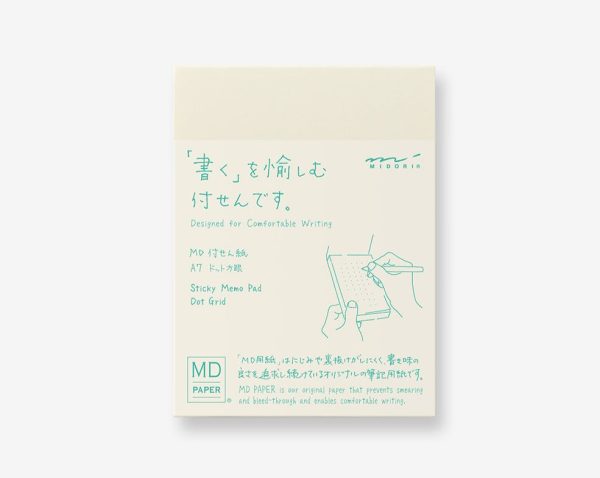 「書く」を愉しむ
付せんです。
MIDORI
Designed for Comfortable Writing
MD 付せん紙
A7 ドット方眼
Sticky Memo Pad
Dot Grid
「MD用紙」はにじみや裏抜けがしにくく、書き味の
良さを追求し続けているオリジナルの筆記用紙です。
MD PAPER is our original paper that prevents smearing
and bleed-through and enables comfortable writing.
MD
PAPER
®